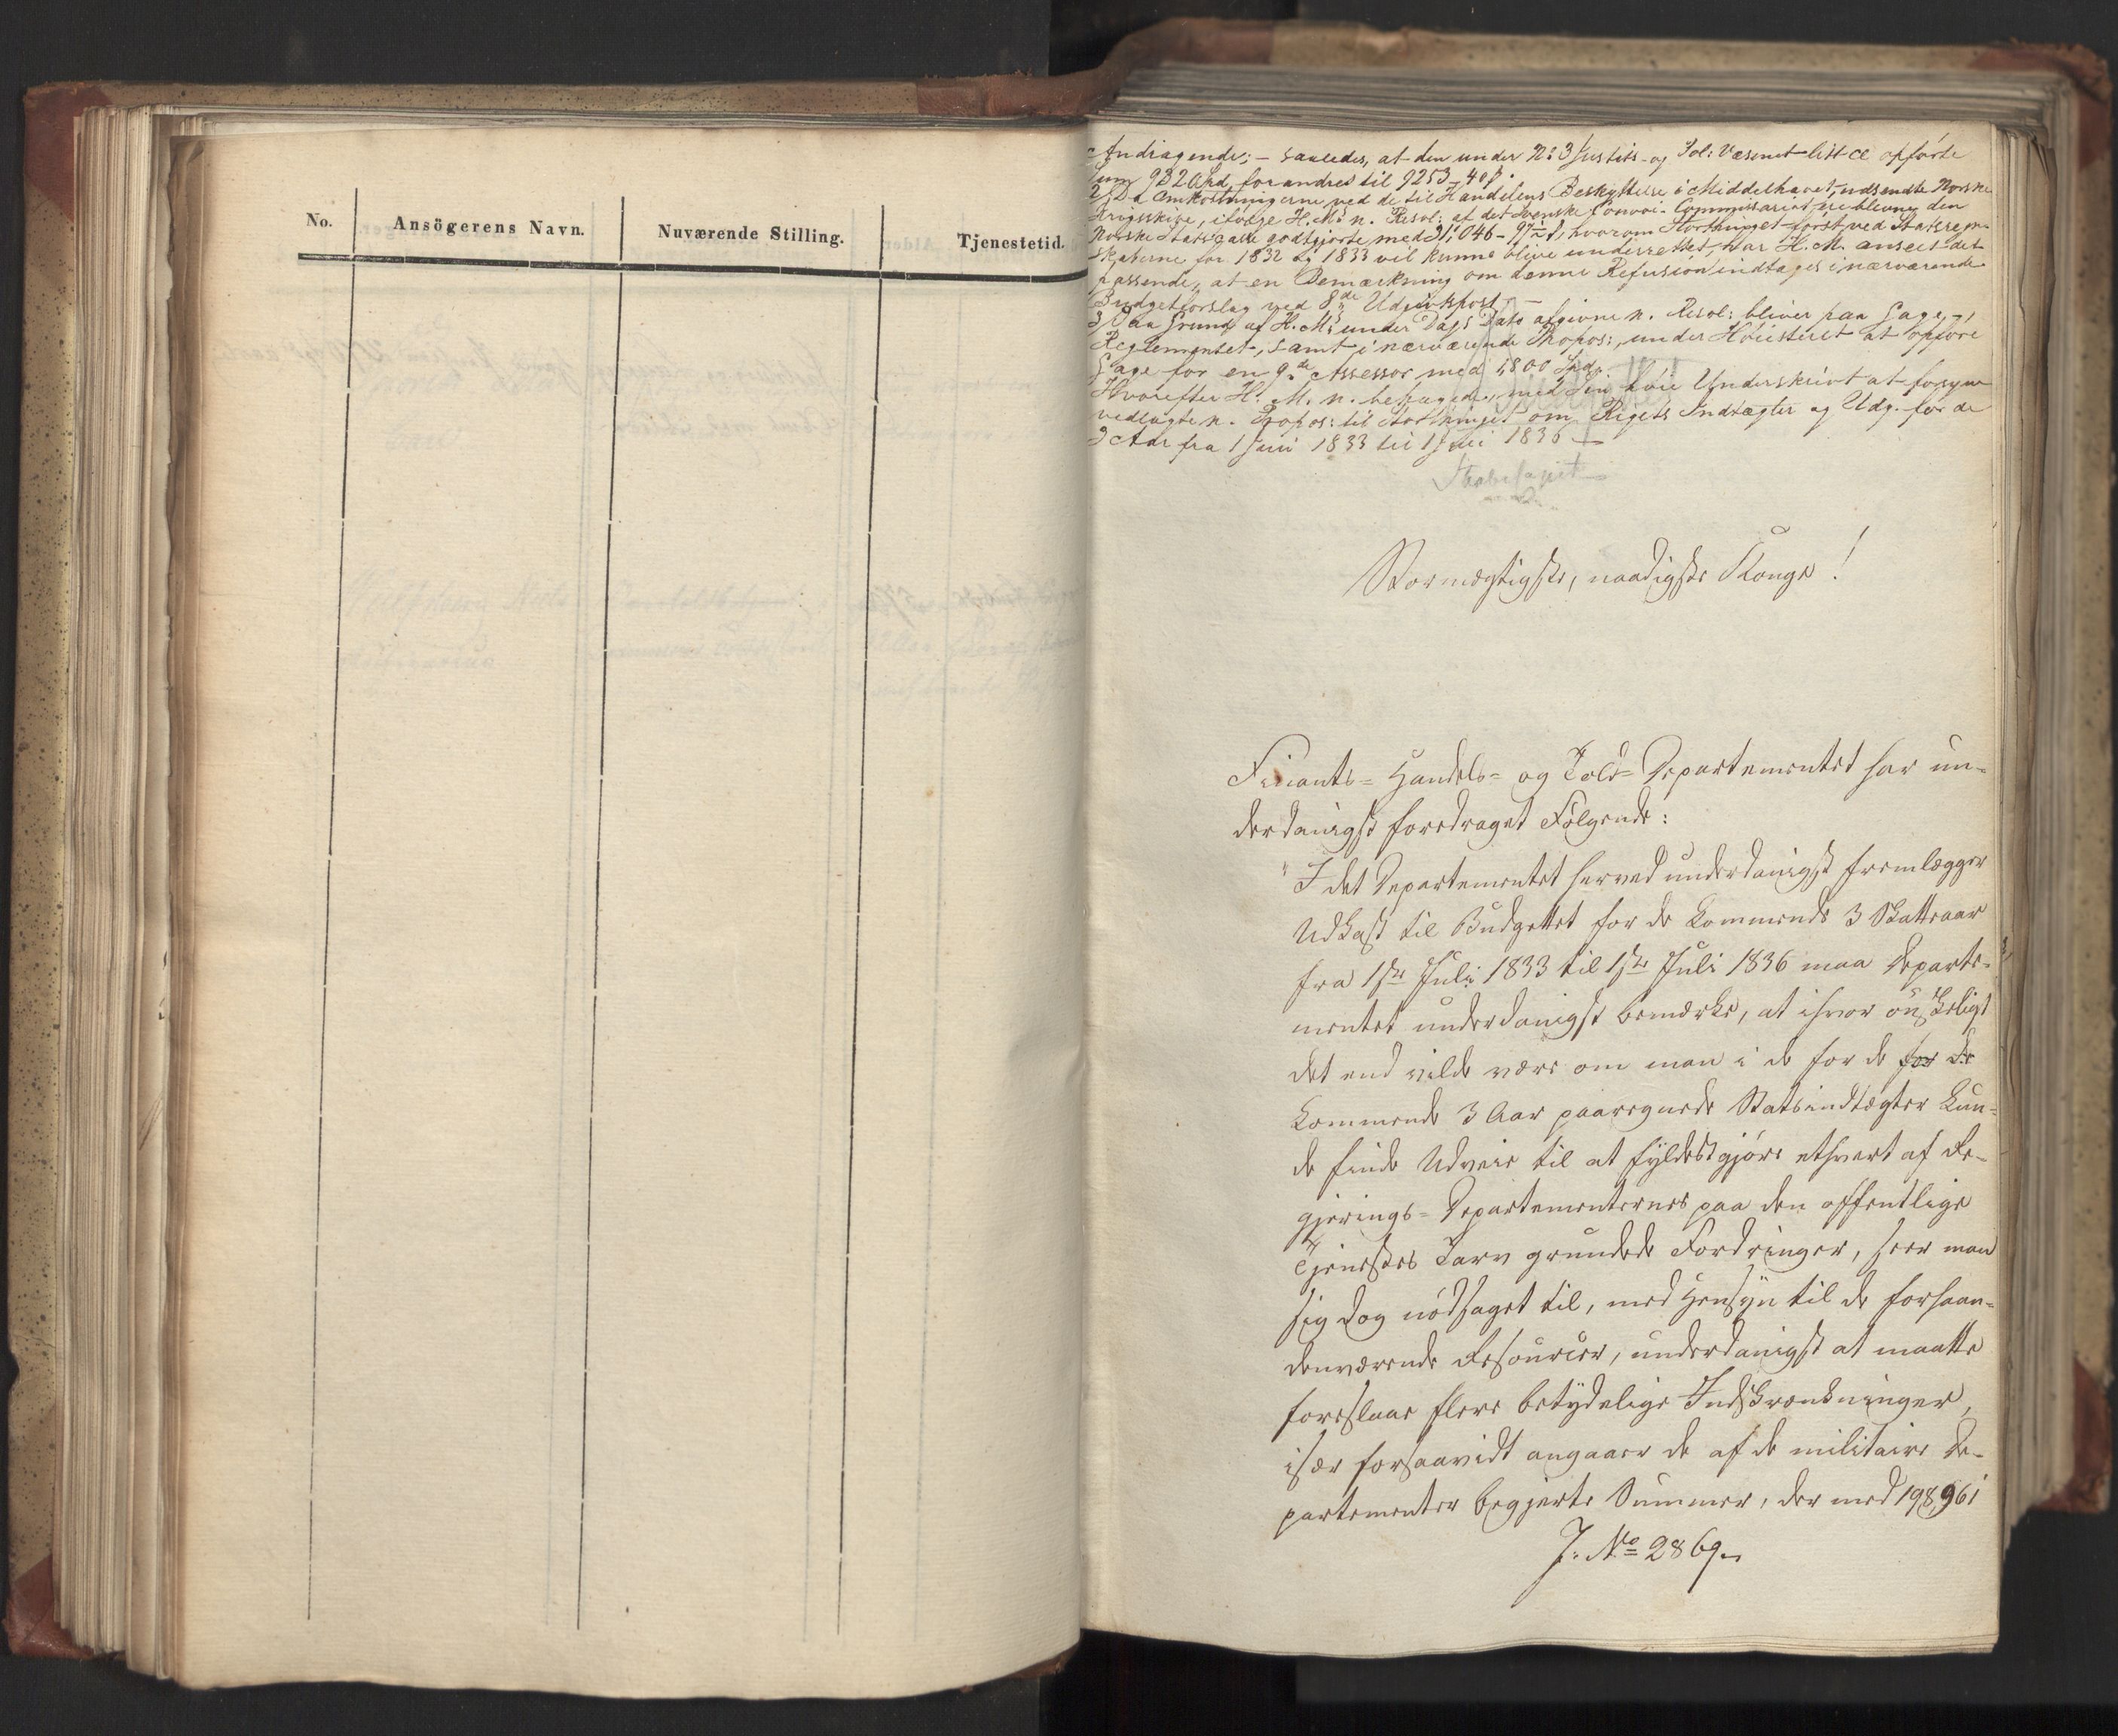 No. Ansögerens Navn. Nuværende Stilling. Tjenestetid.
Andragende; – saaledes, at den under No: 3 Justits- og Pol: Væsenet litt. a opförte
Sum 9320 Spd forandres til 9253 – 40 ß.
2) Da Omkostningerne ved de til Handelens Beskyttelse i Middelhavet udsendte Norske
Krigsskibe, ifölge H. Ms n. Resol: af det Svenske Convoi-Commissariat ere blevne den
Norske Statscasse godtgjorte med 31,046 – 97 ß, hvorom Storthinget först ved Statsregn-
skaberne for 1832 og 1833 vil kunne blive underrettet, har H. M. anseet det
passende, at en Bemærkning om denne Refusion indtages i nærværende
Budgetforslag ved 8de Udgiftspost. –
3) Paa Grund af H. Ms under Dags Dato afgivne n. Resol: bliver paa Gage-
Reglementet, samt i nærværende Propos:, under Höiesteret at opföre
Gage for en 9de Assessor med 1,800 Spd.
Hvorefter H. M. n. behagede, med Sin höie Underskrivt at forsyne
vedlagte n. Propos: til Storthinget om Rigets Indtægter og Udg. for de
3 Aar fra 1 Juli 1833 til 1 Juli 1836 –
Stormægtigste, naadigste Konge!
Finants- Handels- og Told-Departementet har un-
derdanigst foredraget Fölgende:
"I det Departementet herved underdanigst fremlægger
Udkast til Budgettet for de kommende 3 Skatteaar
fra 1ste Juli 1833 til 1ste Juli 1836 maa Departe-
mentet underdanigst bemærke, at ihvor önskeligt
det end vilde være om man i de for de for de
kommende 3 Aar paaregnede Statsindtægter kun-
de finde Udveie til at fyldestgjöre ethvert af Re-
gjerings-Departementernes paa den offentlige
Tjenestes Tarv grundede Fordringer, seer man
sig dog nödsaget til, med Hensyn til de forhaan-
denværende Resourcer, underdanigst at maatte
foreslaae flere betydelige Indskrænkninger,
især forsaavidt angaaer de af de militaire De-
partementer begjerte Summer, der med 198,961
J. No 2869.